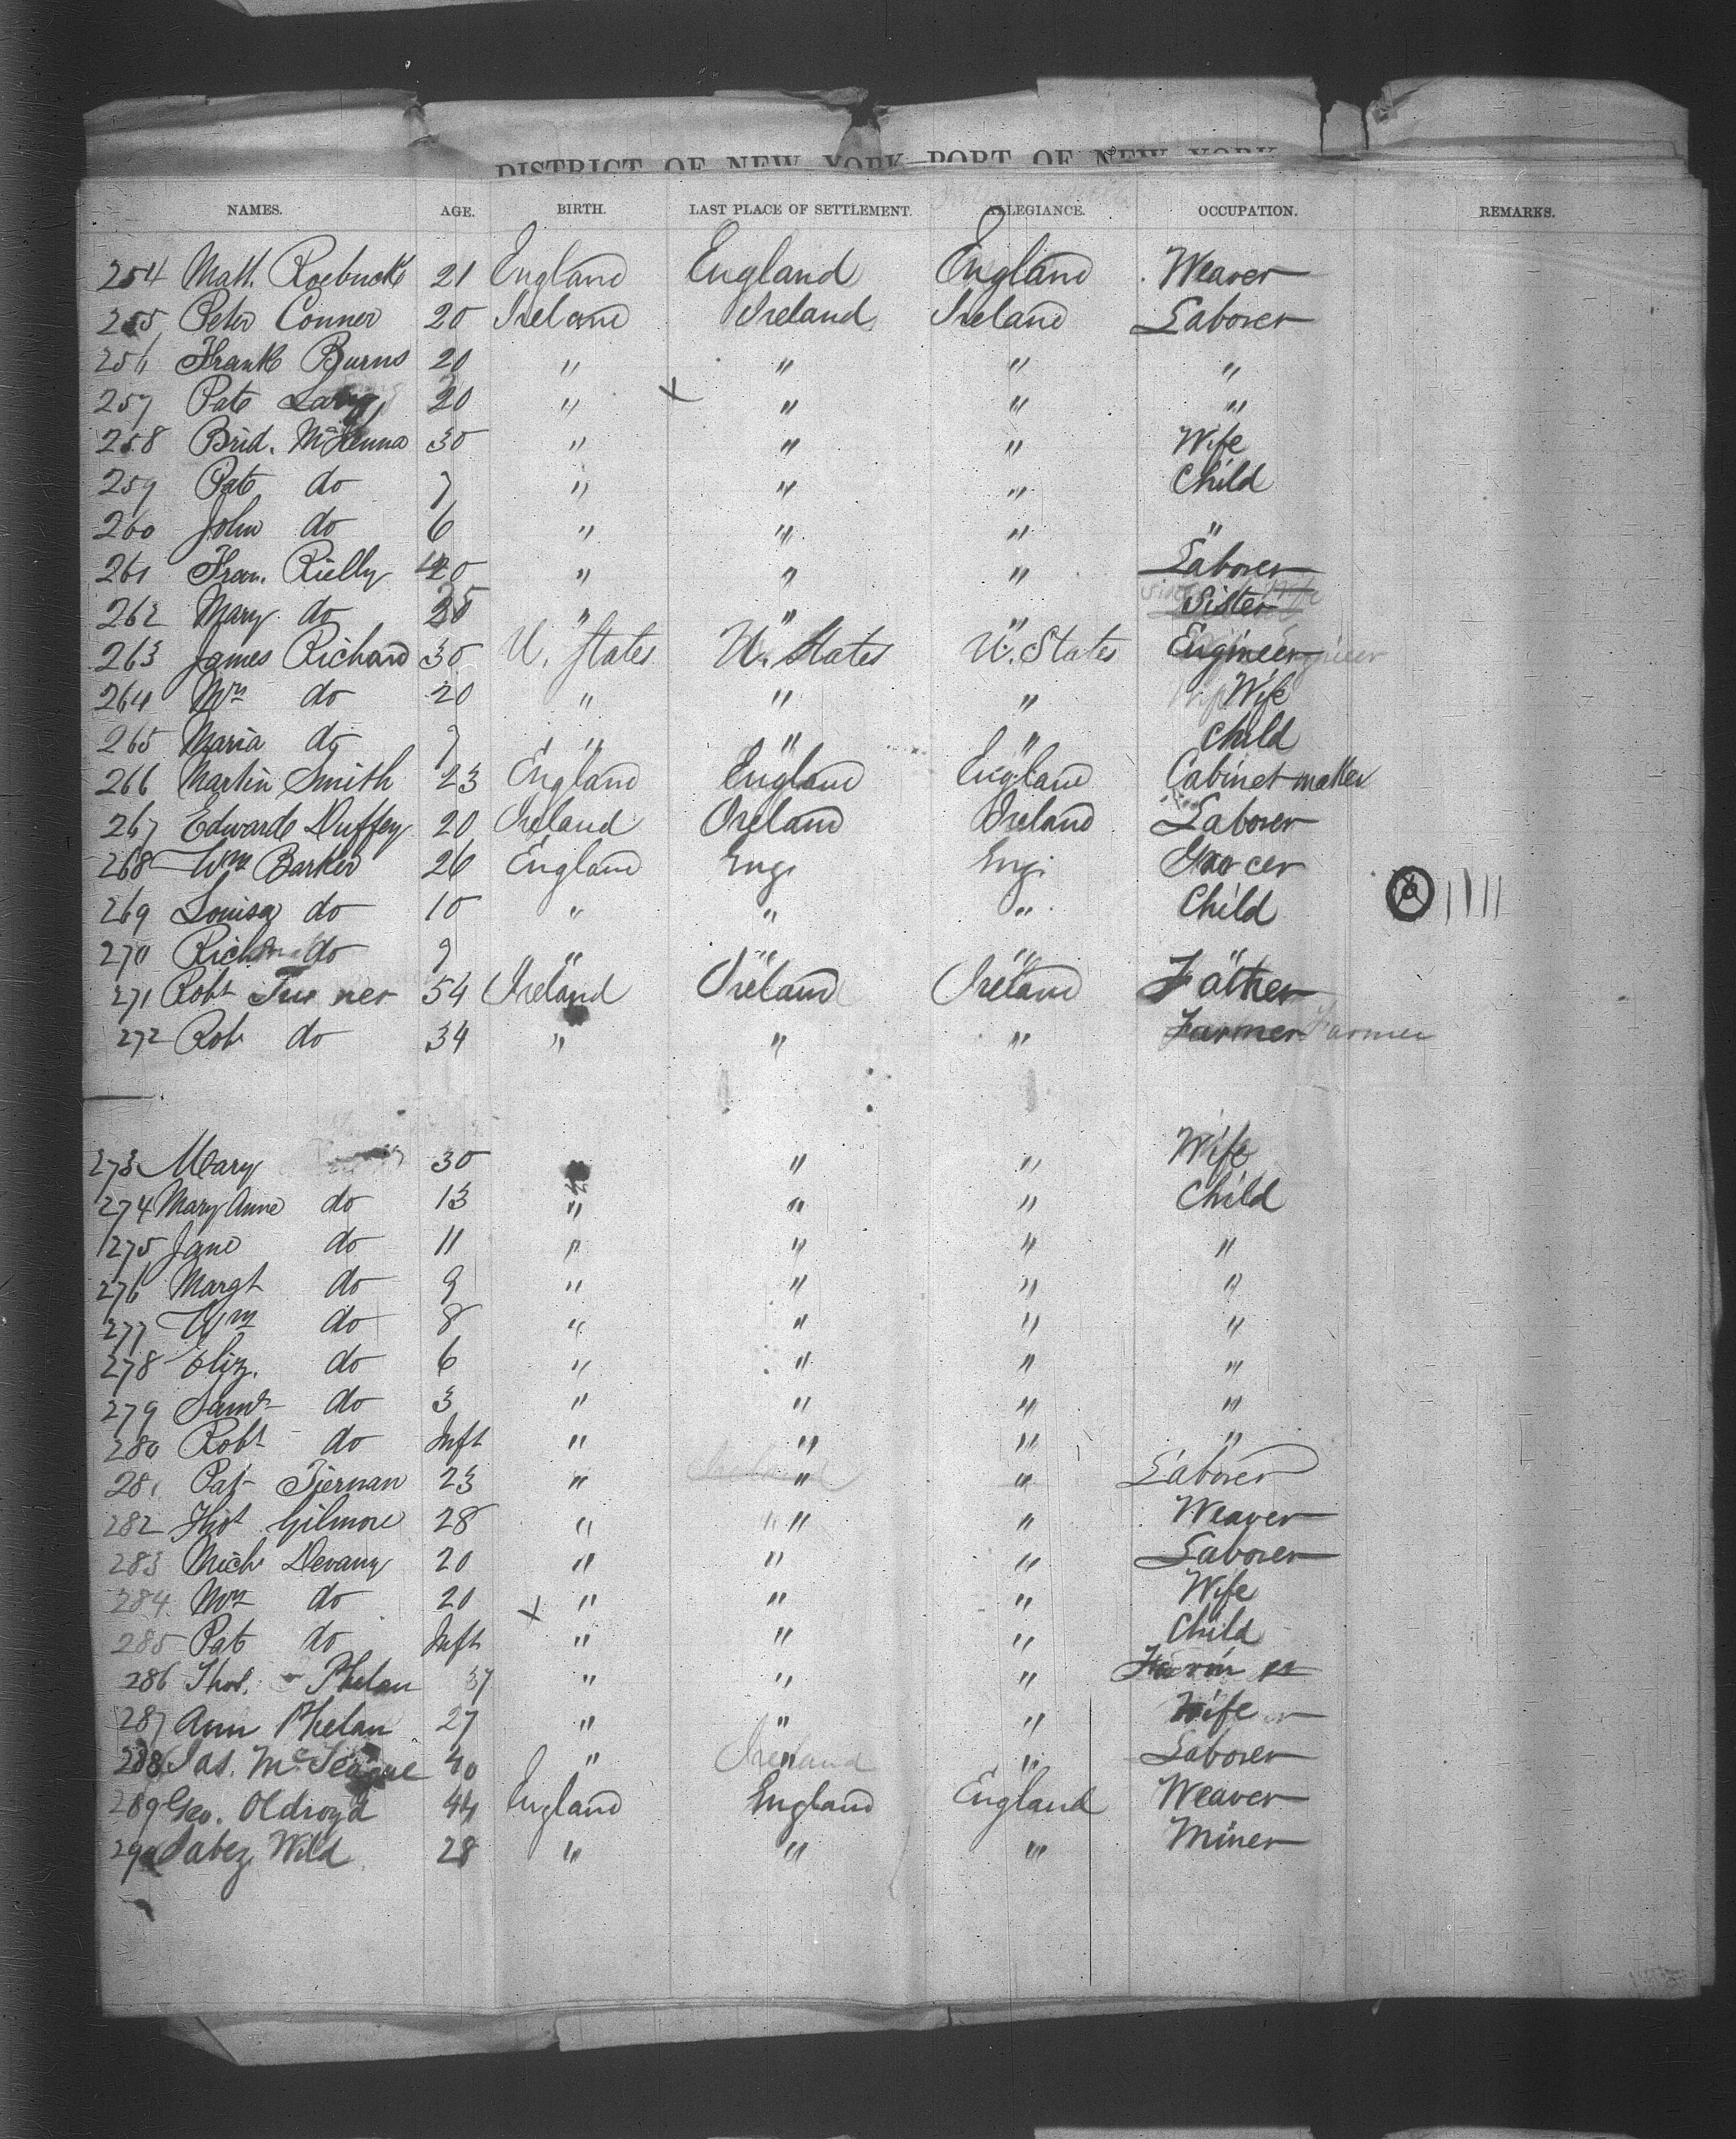 DISTRICT OF NEW YORK PORT OF NEW YORK
NAMES. AGE. BIRTH. LAST PLACE OF SETTLEMENT. ALLEGIANCE. OCCUPATION. REMARKS.
254 Matt. Roebuck 21 England England England Weaver
255 Peter Conner 20 Ireland Ireland Ireland Laborer
256 Frank Burns 20 " " " "
257 Pat 20 " " " "
258 Brid. McKenna 30 " " " Wife
259 Pat do 7 " " " Child
260 John do 6 " " " "
261 Fran. Rielly 20 " " " Laborer
262 Mary do " " " Sister
263 James Richard 30 U. States U. States U. States Engineer
264 Mrs do 20 " " " Wife
265 Maria do 7 " " " Child
266 Martin Smith 23 England England England Cabinet maker
267 Edward Duffey 20 Ireland Ireland Ireland Laborer
268 Wm Barker 26 England Eng. Eng. Grocer
269 Louisa do 10 " " " Child
270 Rich do 9 " " " "
271 Robt Turner 54 Ireland Ireland Ireland Father
272 Rob do 34 " " " Farmer Farmer
273 Mary 30 " " " Wife
274 Mary Anne do 13 " " " Child
275 Jane do 11 " " " "
276 Margt do 9 " " " "
277 Wm do 8 " " " "
278 Eliz. do 6 " " " "
279 Saml do 3 " " " "
280 Robt do Inft " " " "
281 Pat Tiernan 23 " " " Laborer
282 Thos Gilmore 28 " " " Weaver
283 Mich Devany 20 " " " Laborer
284 Mrs do 20 " " " Wife
285 Pat do Inft " " " Child
286 Thos. Phelan 37 " " " Farmer
287 Ann Phelan 27 " " " Wife
288 Jas. McTeague 40 " " " Laborer
289 Geo. Oldroyd 44 England England England Weaver
290 Jabez Wild 28 " " " Miner